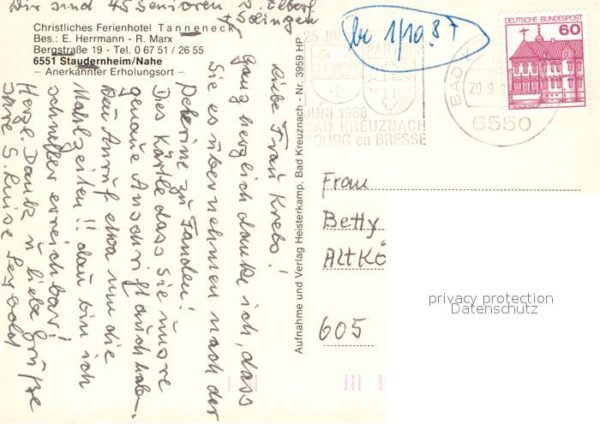 Wir sind 45 Senioren
+ Solingen
Christliches Ferienhotel Tanneneck
Bes.: E. Herrmann - R. Marx
Bergstraße 19 - Tel. 0 67 51 / 26 55
6551 Staudernheim/Nahe
– Anerkannter Erholungsort –
be 1/10.87
Liebe Frau Krebs!
Ganz herzlich danke ich, dass
Sie es übernehmen nach der
zu fanden!
Das Kärtle dass Sie unsre
genaue Anschrift auch haben.
Den Anruf etwa um die
Mahlzeiten!! dan bin ich
schneller erreichbar!
Herzl. Dank u. liebe Grüße
Ihre S. Luise
Aufnahme und Verlag Heisterkamp, Bad Kreuznach - Nr. 3959 HP
25 JAHR
PAR
JUNI 1988
BAD KREUZNACH
BOURG en BRESSE
BAD
6550
DEUTSCHE BUNDESPOST
60
Frau
Betty
ALTKÖ
605
privacy protection
Datenschutz